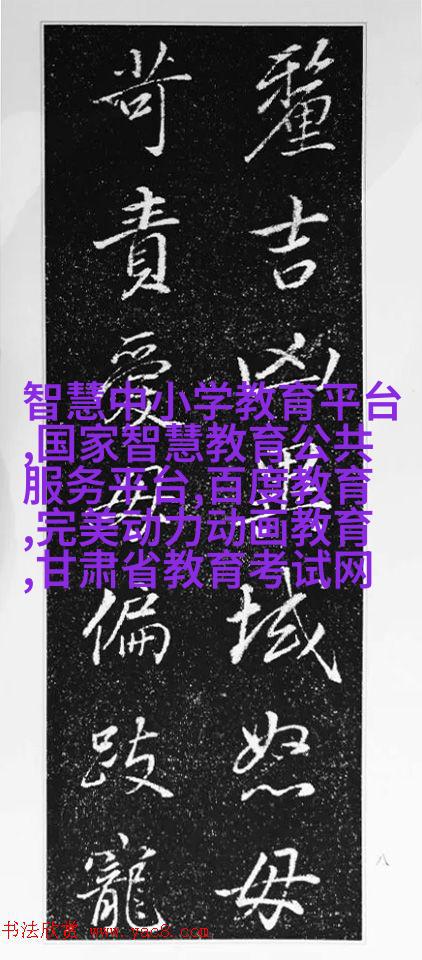 釐吉凶異域怒毋
苛責愛毋偏跂寵
智慧中小学教育平台
,国家智慧教育公共
服务平台,百度教育
,完美动力动画教育
,甘肃省教育考试网
八
书法欣赏 www.yac8.com